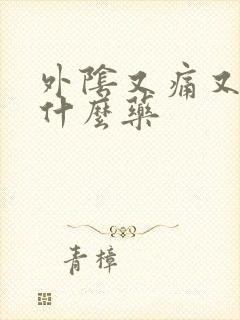 外陰又痛又
什麼藥
青樟